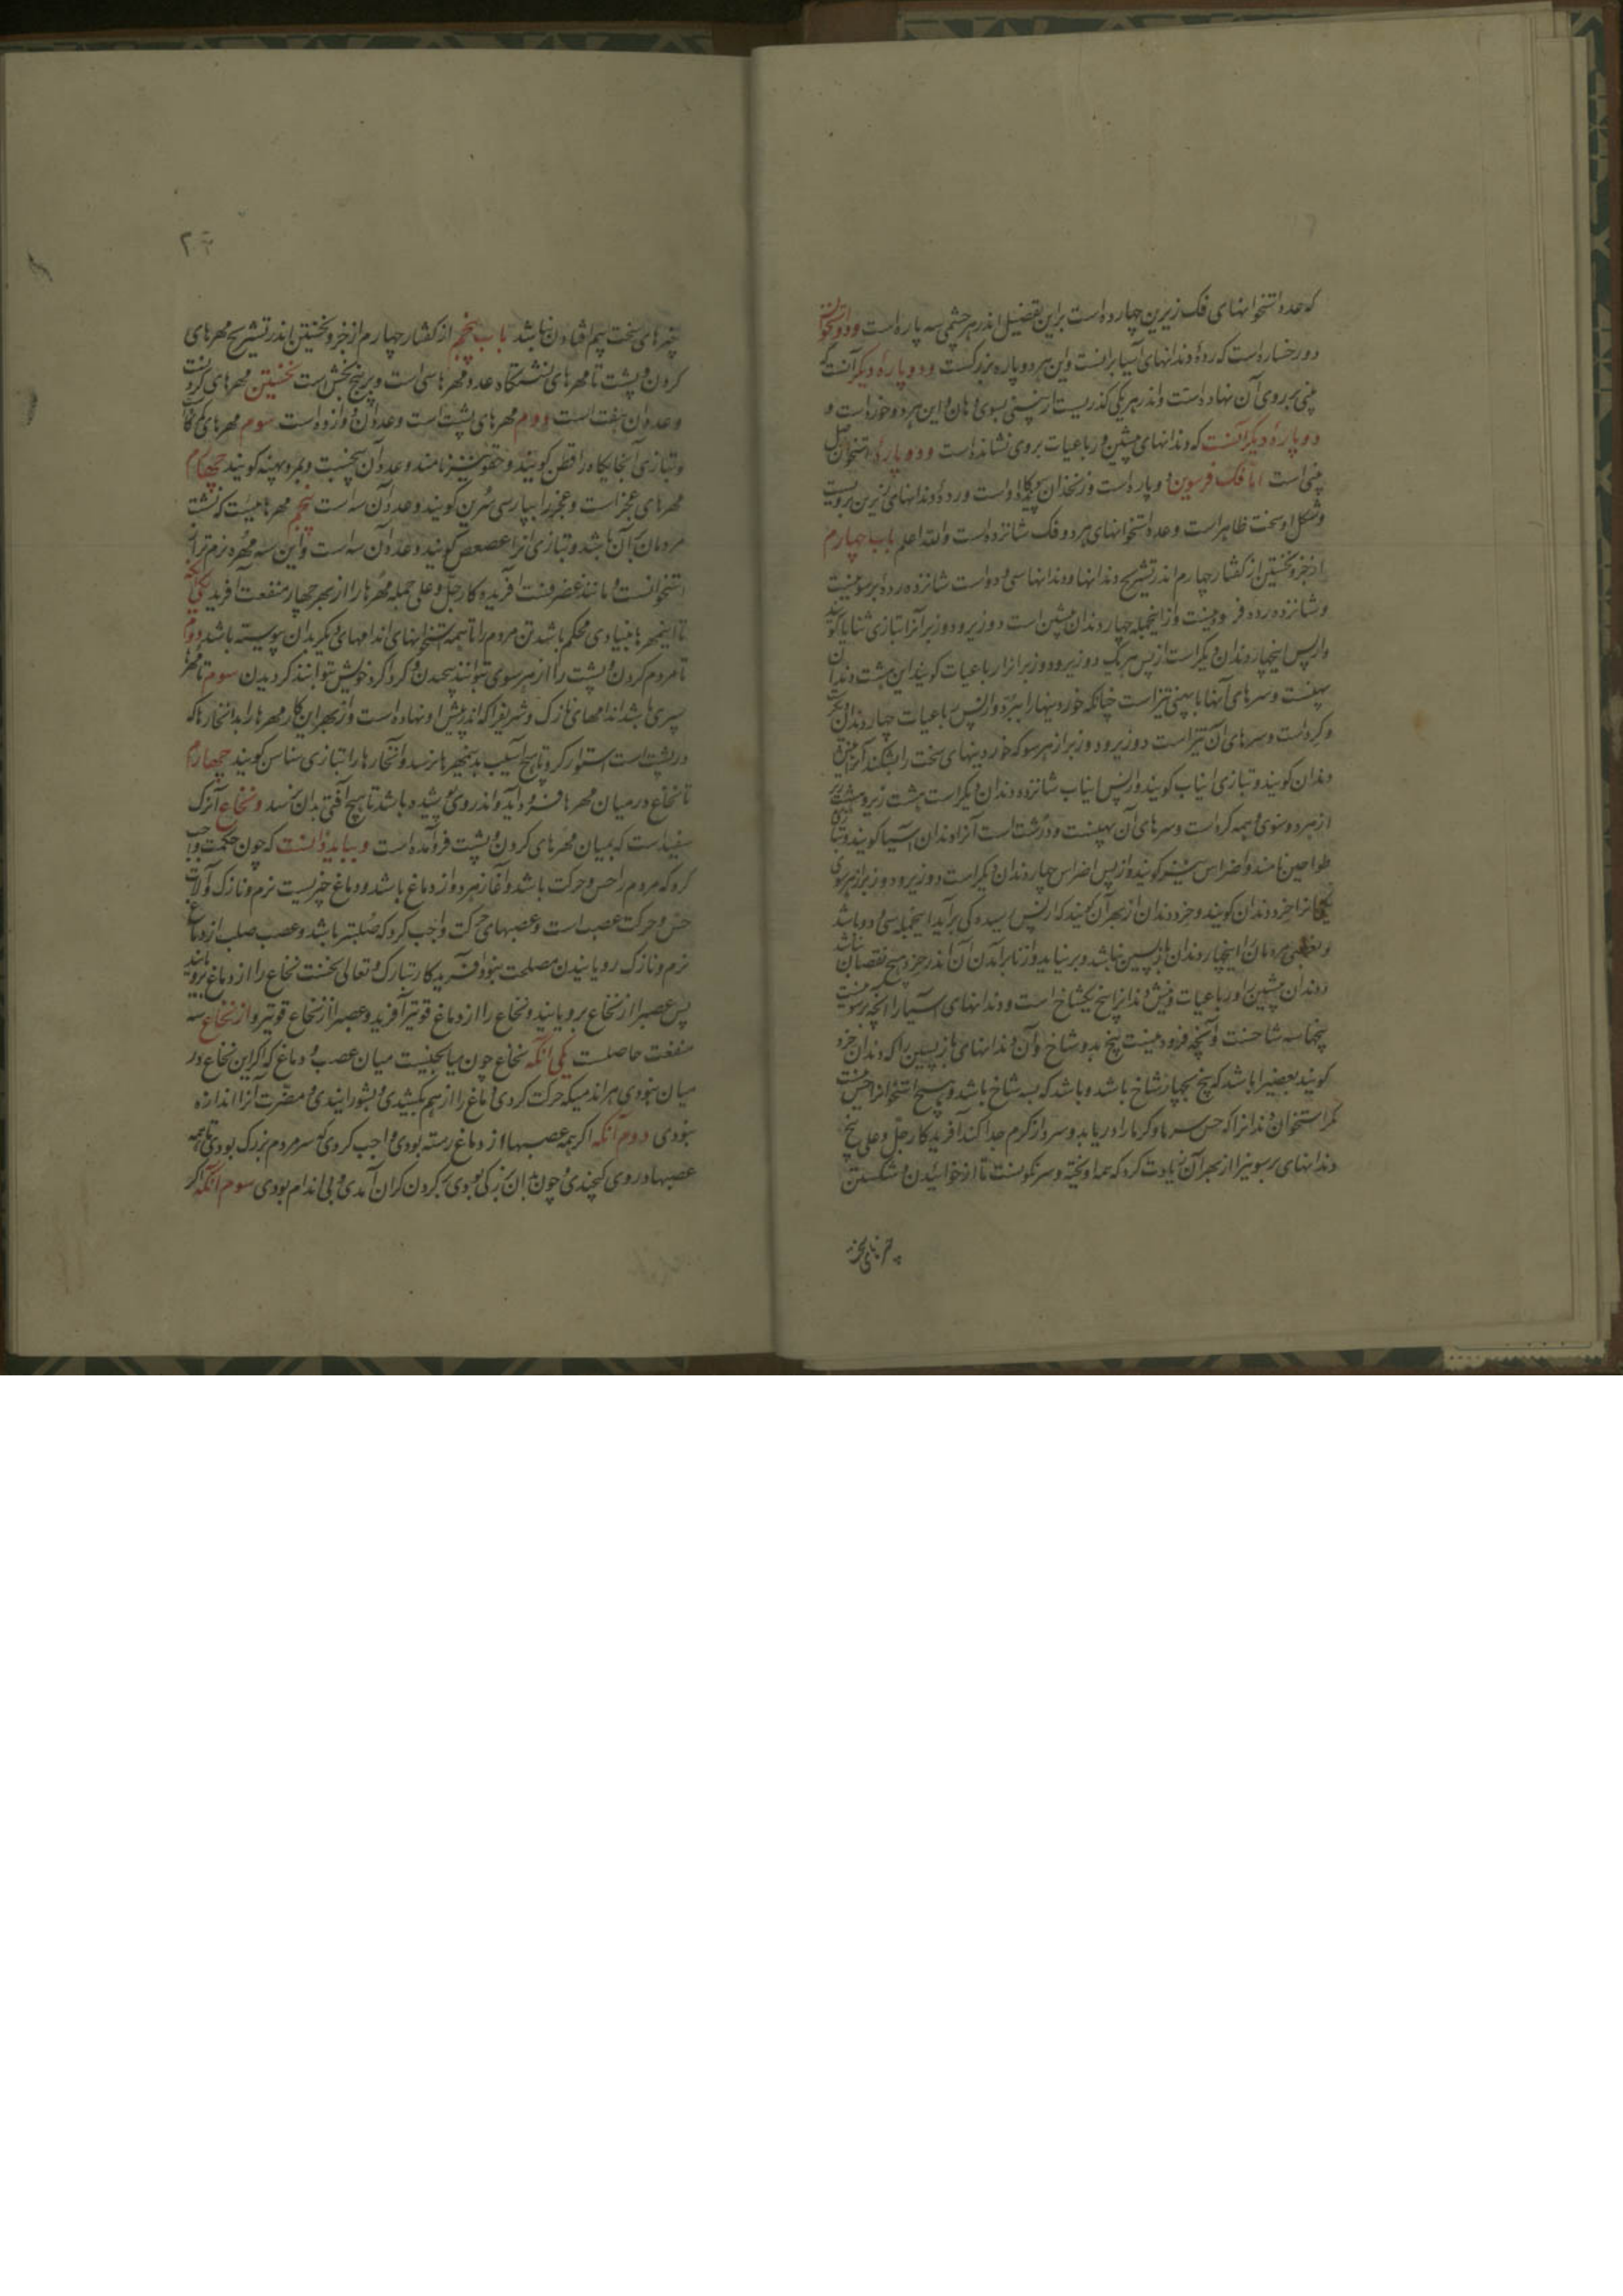 که عدد استخوانهای فک زبرین چهارده است براین تفضیل اندر هر چشمی سه پاره است و دو استخوان
دو رخساره است که ردهٔ دندانهای آسیا برانست و این هر دو پاره بزرگست و دو پارهٔ دیگر آنست که
بینی بر روی آن نهاده است و اندر هر یکی گذریست از بینی بسوی دهان و این هر دو خورد است و
دو پارهٔ دیگر آنست که دندانهای پیشین و رباعیات بر وی نشانده است و دو پارهٔ استخوان اصل
بینی است اما فک فرسوین دو پاره است و زنخدان پیوندگاه او است و ردهٔ دندانهای زیرین برویست
و شکل او سخت ظاهر است و عدد استخوانهای هر دو فک شانزده است والله اعلم باب چهارم
از جزو نخستین از گفتار چهارم اندر تشریح دندانها و دندانها سی و دو است شانزده رده برسوینست
و شانزده رده فرودینست و از اینجمله چهار دندان پیشین است دو زیر و دو زبر آنرا بتازی ثنایا گویند
و از پس اینچهار دندان دیگر است از پس هر یک دو زیر و دو زبر انرا رباعیات گویند این هشت دندان
پهنست و سرهای آنها با پهنی تیز است چنانکه خوردینها را ببرد و از پس رباعیات چهار دندان دیگر است
و گرد است و سرهای آن تیز است دو زیر و دو زبر از هر سو که خوردینهای سخت را بشکند آنرا نیش
دندان گویند و بتازی انیاب گویند و از پس انیاب شانزده دندان دیگر است هشت زیر و هشت زبر
از هر دو سوی و همه گرد است و سرهای آن پهنست و درشت است آنرا دندان آسیا گویند و بتازی
طواحین نامند و اضراس نیز گویند و از پس اضراس چهار دندان دیگر است دو زیر و دو زبر از هر سوی
یکی انرا خرد دندان گویند و خرد دندان از بهر آن گویند که از پس رسیدگی برآید اینجمله سی و دو باشد
و بعضی مردمان را اینچهار دندان بازپسین نباشد و برنیاید و از نابرآمدن آن اندر خرد هیچ نقصان نباشد
دندان پیشین را و رباعیات و نیش دندانرا بیخ یکشاخ است و دندانهای آسیا را انچه برسوینست
بیخها سه شاخست و آنچه فرودینست بیخ بدو شاخ و آن دندانهای بازپسین را که دندان خرد
گویند بعضیرا باشد که بیخ بچهار شاخ باشد و باشد که بسه شاخ باشد و هیچ استخوانرا حس نیست
مگر استخوان دندانرا که حس سرما و گرما را دریابد و سرد از گرم جدا کند آفریدگار جل و علی بیخ
دندانهای برسوینرا از بهر آن زیادت کرد که همه آویخته و سرنگونست تا از خوائیدن و شکستن
چیزهای سخت
۲۶
چیزهای سخت بیم افتادن نباشد باب پنجم از گفتار چهارم از جزو نخستین اندر تشریح مهرهای
گردن و پشت تا مهرهای نشستگاه عدد مهرها سی است و بر پنج بخش است نخستین مهرهای گردنست
و عدد ان هفت است دوم مهرهای پشت است و عدد ان دوازده است سوم مهرهای کمرگاه
و بتازی آنجایگاه را قطن گویند و حقو نیز نامند و عدد آن پنجست و بزرگ و پهنه گویند چهارم
مهرهای عجز است و عجز را بپارسی سرین گویند و عدد آن سه است پنجم مهرهائیست که نشست
مردمان بر آن باشد و بتازی آنرا عصعص گویند و عدد آن سه است و این سه مهره نرم تر از
استخوانست و مانند غضروفست آفریدگار جل و علی جمله مهرها را از بهر چهار منفعت آفرید یکی آنکه
تا اینمهرها بنیادی محکم باشد تن مردم را تا همه استخوانهای اندامهای دیگر بدان پیوسته باشد دوم
تا مردم گردن و پشت را از هر سوی بتوانند پیچیدن و گرد اگرد خویش بتوانند گردیدن سوم تا مهرها
سپری باشد اندامهای نازک و شریفرا که اندر پیش او نهاده است و از بهر این کار مهرها را به افخارها که
در پشت است استوار کرد تا هیچ آسیب بدینمهرها نرسد و آفخارها را بتازی سناسن گویند چهارم
تا نخاع در میان مهرها فرود آید و اندر وی پوشیده باشد تا هیچ آفتی بدان نرسد و نخاع آنرگ
سفید است که بمیان مهرهای گردن و پشت فرو آمده است و بباید دانست که چون حکمت واجب
کرد که مردم را حس و حرکت باشد و آغاز هر دو از دماغ باشد و دماغ چیزیست نرم و نازک و آلات
حس و حرکت عصب است و عصبهای حرکت واجب کرد که صلبتر باشد و عصب صلب از دماغ
نرم و نازک رویانیدن مصلحت نبود آفریدگار تبارک و تعالی نخست نخاع را از دماغ برویانید
پس عصبرا از نخاع برویانید و نخاع را از دماغ قویتر آفرید و عصبرا از نخاع قویتر و از نخاع سه
منفعت حاصلست یکی آنکه نخاع چون میانجیست میان عصب و دماغ که اگر این نخاع در
میان نبودی هر اندامیکه حرکت کردی دماغ را از هم بکشیدی و بشورانیدی و مضرت آنرا اندازه
نبودی دوم آنکه اگر همه عصبها از دماغ رسته بودی واجب کردی که سر مردم بزرگ بودی تا همه
عصبها در وی گنجیدی و چون بدان بزرگی بودی بر گردن گران آمدی و بی اندام بودی سوم آنکه اگر